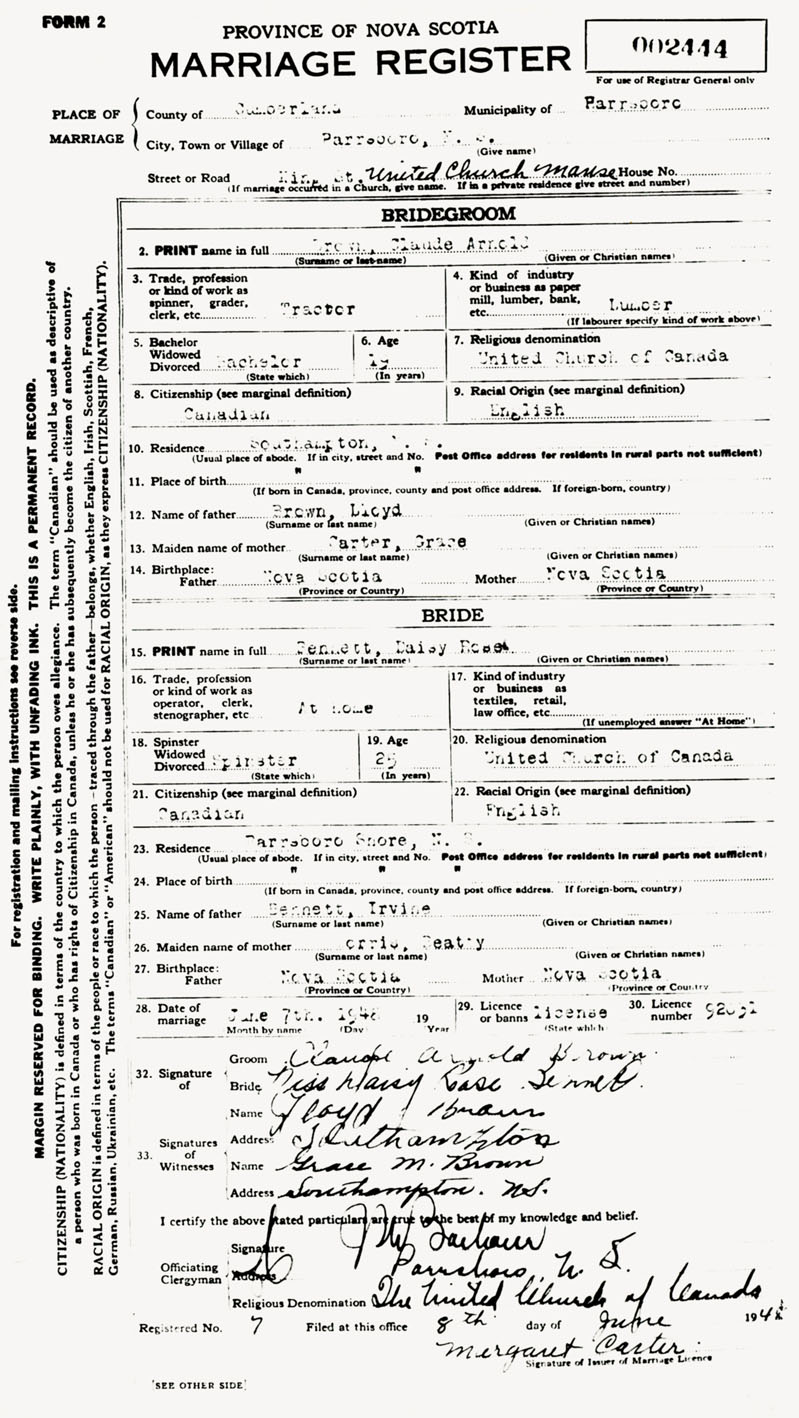 FORM 2
PROVINCE OF NOVA SCOTIA
MARRIAGE REGISTER
002444
For use of Registrar General only
PLACE OF MARRIAGE
County of Cumberland Municipality of Parrsboro
City, Town or Village of Parrsboro, N. S.
(Give name)
Street or Road King St. United Church Manse House No.
(If marriage occurred in a Church, give name. If in a private residence give street and number)
BRIDEGROOM
2. PRINT name in full Brown, Claude Arnold
(Surname or last name) (Given or Christian names)
3. Trade, profession or kind of work as spinner, grader, clerk, etc. Tractor
4. Kind of industry or business as paper mill, lumber, bank, etc. Lumber
(If labourer specify kind of work above)
5. Bachelor Widowed Divorced Bachelor
(State which)
6. Age 19
(In years)
7. Religious denomination
United Church of Canada
8. Citizenship (see marginal definition)
Canadian
9. Racial Origin (see marginal definition)
English
10. Residence Southampton, N. S.
(Usual place of abode. If in city, street and No. Post Office address for residents in rural parts not sufficient)
" "
11. Place of birth
(If born in Canada, province, county and post office address. If foreign-born, country)
12. Name of father Brown, Lloyd
(Surname or last name) (Given or Christian names)
13. Maiden name of mother Carter, Grace
(Surname or last name) (Given or Christian names)
14. Birthplace:
Father Nova Scotia Mother Nova Scotia
(Province or Country) (Province or Country)
BRIDE
15. PRINT name in full Bennett, Daisy
(Surname or last name) (Given or Christian names)
16. Trade, profession or kind of work as operator, clerk, stenographer, etc At home
17. Kind of industry or business as textiles, retail, law office, etc.
(If unemployed answer "At Home")
18. Spinster Widowed Divorced Spinster
(State which)
19. Age 25
(In years)
20. Religious denomination
United Church of Canada
21. Citizenship (see marginal definition)
Canadian
22. Racial Origin (see marginal definition)
English
23. Residence Parrsboro Shore, N. S.
(Usual place of abode. If in city, street and No. Post Office address for residents in rural parts not sufficient)
" " "
24. Place of birth
(If born in Canada, province, county and post office address. If foreign-born, country)
25. Name of father Bennett, Irvine
(Surname or last name) (Given or Christian names)
26. Maiden name of mother
(Surname or last name) (Given or Christian names)
27. Birthplace:
Father Nova Scotia Mother Nova Scotia
(Province or Country) (Province or Country)
28. Date of marriage June 7th. 1948 19
Month by name (Day) Year
29. Licence or banns license
(State which)
30. Licence number
32. Signature of
Groom Claude Arnold Brown
Bride Miss Daisy Bennett
33. Signatures of Witnesses
Name Lloyd Brown
Address Southampton
Name Grace M. Brown
Address Southampton. NS.
I certify the above stated particulars are true to the best of my knowledge and belief.
Officiating Clergyman
Signature
Address Parrsboro, N S.
Religious Denomination The United Church of Canada
Registered No. 7 Filed at this office 8th day of June 1948
Margaret Carter
Signature of Issuer of Marriage Licence
(SEE OTHER SIDE)
For registration and mailing instructions see reverse side.
MARGIN RESERVED FOR BINDING. WRITE PLAINLY, WITH UNFADING INK. THIS IS A PERMANENT RECORD.
CITIZENSHIP (NATIONALITY) is defined in terms of the country to which the person owes allegiance. The term "Canadian" should be used as descriptive of
a person who was born in Canada or who has rights of Citizenship in Canada, unless he or she has subsequently become the citizen of another country.
RACIAL ORIGIN is defined in terms of the people or race to which the person—traced through the father—belongs, whether English, Irish, Scottish, French,
German, Russian, Ukrainian, etc. The terms "Canadian" or "American" should not be used for RACIAL ORIGIN, as they express CITIZENSHIP (NATIONALITY).